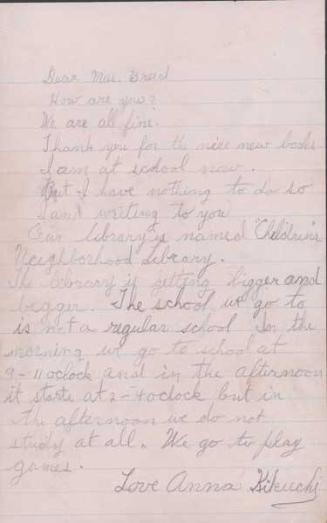 Dear Miss. Breed
How are you?
We are all fine.
Thank you for the nice new books
I am at school now.
But I have nothing to do so
I am writing to you
Our library is named "Children's
Neighborhood Library.
The library is getting bigger and
bigger. The school we go to
is not a regular school In the
morning we go to school at
9-11 oclock and in the afternoon
it starts at 2-4 oclock but in
the afternoon we do not
study at all. We go to play
games.
Love Anna Kikuchi